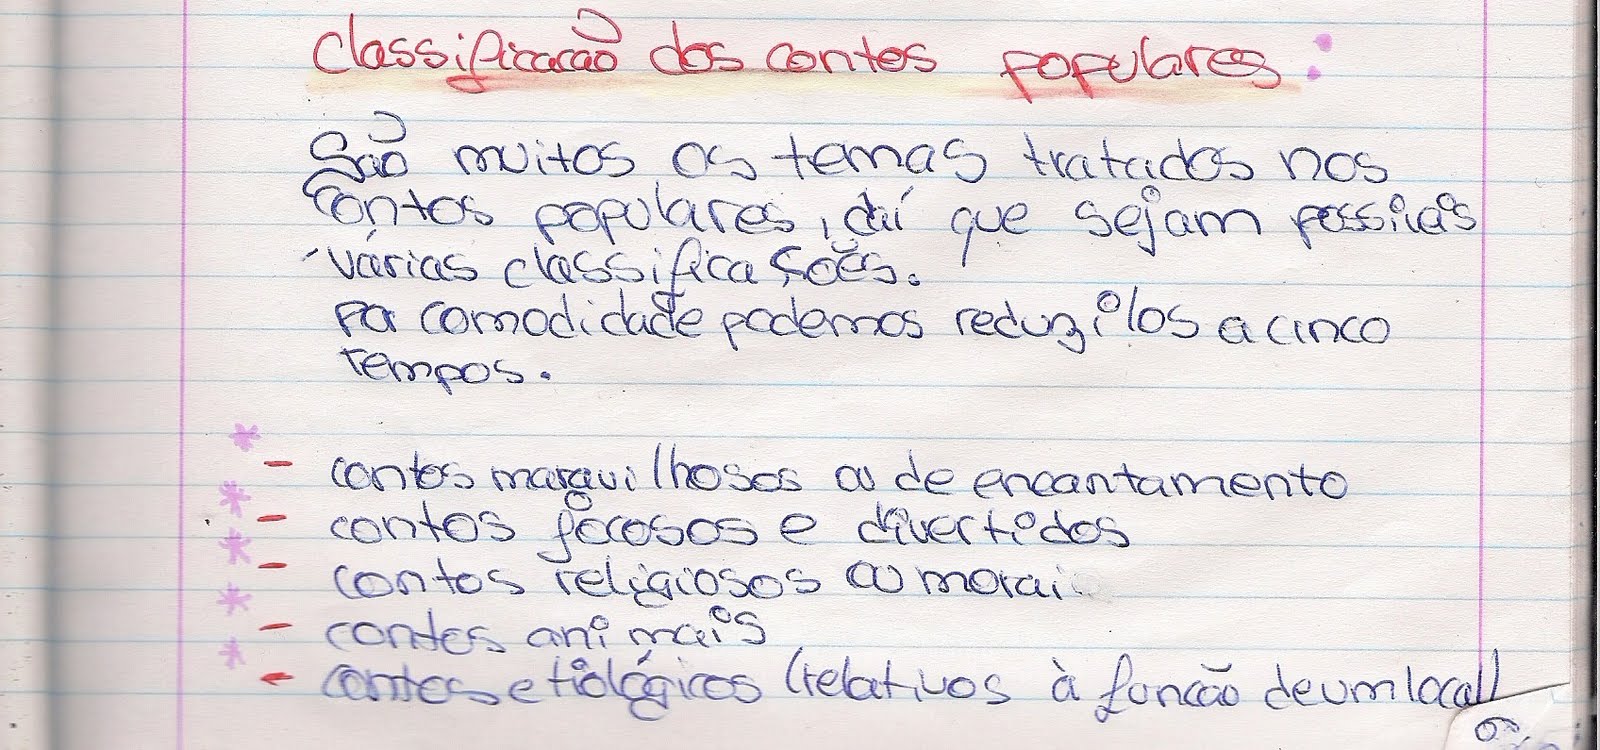 classificacão dos contos populares :
São muitos os temas tratados nos
contos populares, daí que sejam possiveis
várias classificações.
por comodidade podemos reduzilos a cinco
tempos.
- contos maravilhosos ou de encantamento
- contos jocosos e divertidos
- contos religiosos ou morai
- contos animais
- contos etiológicos (relativos à funcão de um local)